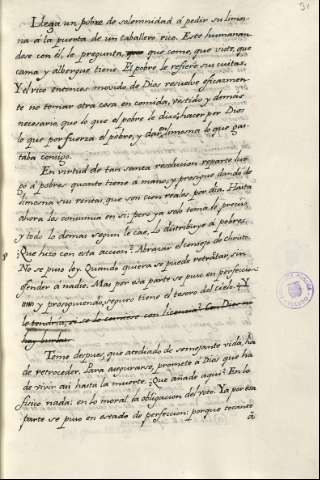 Llega un pobre de solemnidad á pedir su limos-
na á la puerta de un caballero rico. Este humanan-
dose con él, le pregunta, que come, que viste, que
cama y albergue tiene. El pobre le refiere sus cuitas.
Y el rico entonces movido de Dios resuelve eficazmen-
te no tomar otra cosa en comida, vestido y demas
necesario, que lo que el pobre lo hacer por Dios
lo que por fuerza el pobre, y dar en limosna lo que gas-
taba consigo.
En virtud de tan santa resolucion reparte lue-
go á pobres quanto tiene á mano, y prosigue dando de
limosna sus rentas, que son cien reales por dia. Hasta
ahora los consumia en si: pero ya solo toma lo preciso,
y todo lo demas segun le cae, lo distribuye á pobres.
¿Que hizo con esta accion? Abrazar el consejo de Christo.
No se puso ley. Quando quiera se puede retratar sin
ofender á nadie. Mas por esa parte se puso en perfeccion
y prosiguiendo, seguro tiene el tesoro del cielo. ¿Y
lo tendria, si se lo corriese con licencia? Con Dios no
hay burlas.
Teme despues, que atediado de semejante vida, ha
de retroceder. Para asegurarse, promete á Dios que ha
de vivir asi hasta la muerte. ¿Que añade aqui? En lo
fisico nada: en lo moral la obligacion del voto. Ya por esa
parte se puso en estado de perfeccion: porque tocante
á